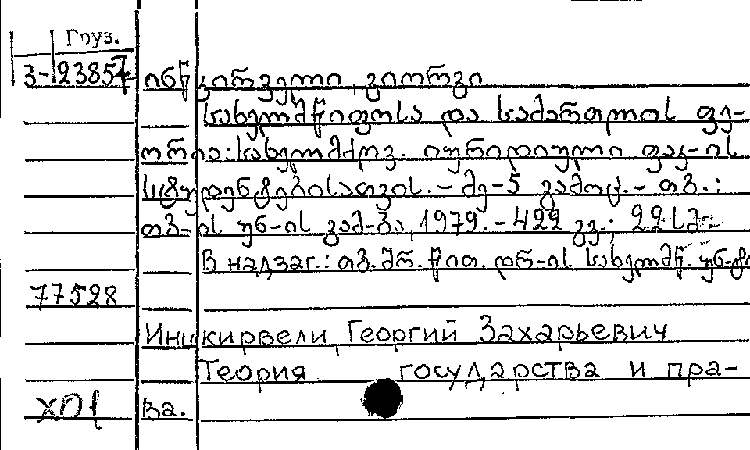 Груз.
3-23857 ინწკირველი, გიორგი
სახელმწიფოსა და სამართლის თე-
ორია: სახელმძღვ. იურიდიული ფაკ-ის
სტუდენტებისათვის. - მე-5 გამოც. - თბ.:
თბ-ის უნ-ის გამ-ბა, 1979. - 422 გვ.; 22 სმ.-
В надзаг.: თბ. შრ. წით. დრ-ის სახელმწ. უნ-ტი
77528
Инцкирвели, Георгий Захарьевич
Теория государства и пра-
ХП1 ва.